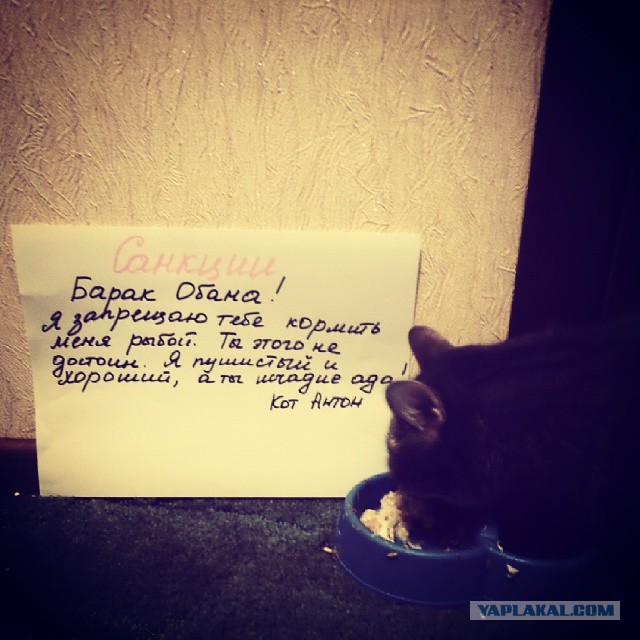 Санкции
Барак Обама!
Я запрещаю тебе кормить
меня рыбой. Ты этого не
достоин. Я пушистый и
хороший, а ты исчадие ада!
Кот Антон
YAPLAKAL.COM